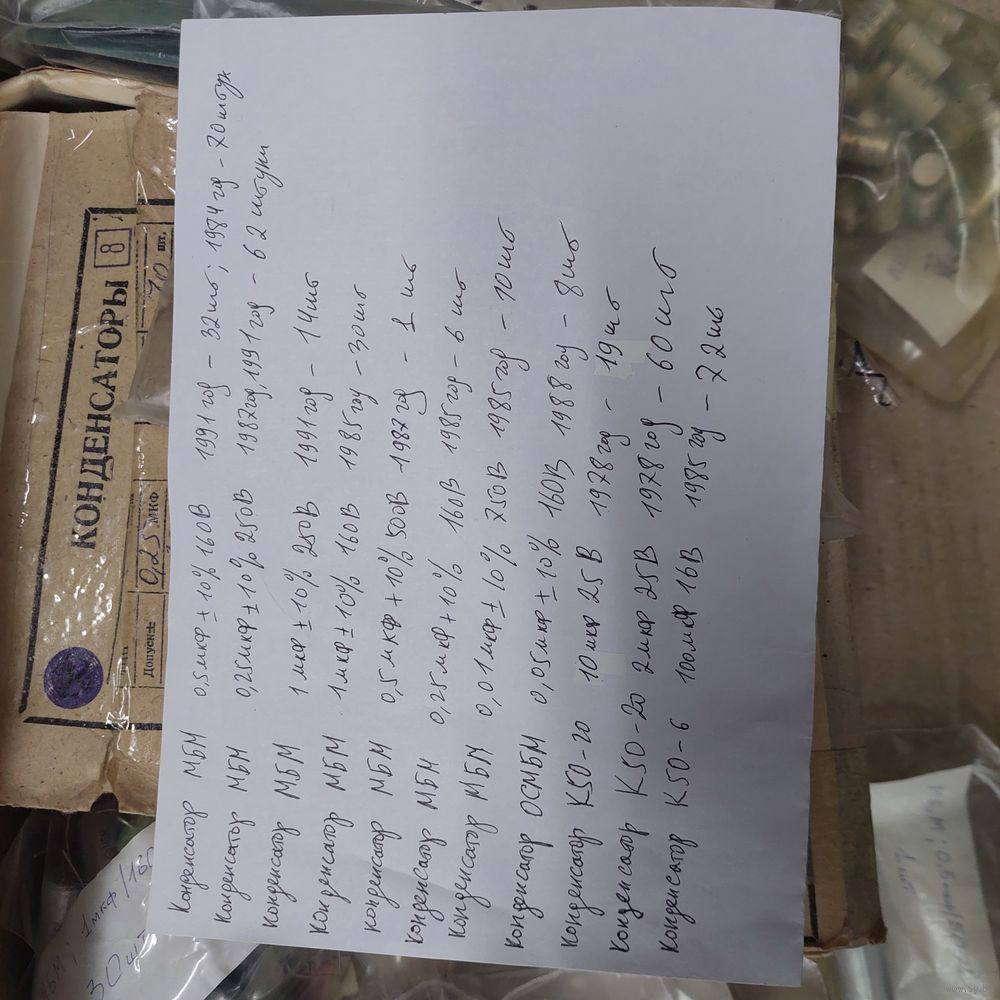 Конденсатор МБМ 0,5мкф ± 10% 160В 1991 год - 32шт, 1984 год - 20штук
Конденсатор МБМ 0,25мкф ± 10% 250В 1987год, 1991 год - 62 штуки
Конденсатор МБМ 1мкф ± 10% 250В 1991 год - 14шт
Конденсатор МБМ 1мкф ± 10% 160В 1985 год - 30шт
Конденсатор МБМ 0,5мкф + 10% 500В 1987 год - 1 шт
Конденсатор МБМ 0,25мкф + 10% 160В 1985 год - 6 шт
Конденсатор МБМ 0,01мкф ± 10% 750В 1985 год - 10шт
Конденсатор ОСМБМ 0,05мкф ± 10% 160В 1988 год - 8шт
Конденсатор К50-20 10мкф 25В 1978 год - 19шт
Конденсатор К50-20 2мкф 25В 1978 год - 60шт
Конденсатор К50-6 100мкф 16В 1985 год - 72шт
КОНДЕНСАТОРЫ 8
0,25 МКФ 70 шт.
Допуск±
МБМ; 1мкф/
30шт